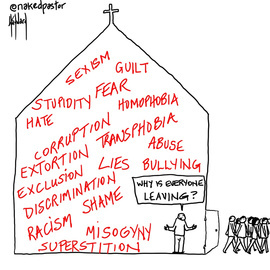 @nakedpastor
SEXISM GUILT
STUPIDITY FEAR
HOMOPHOBIA
HATE
CORRUPTION
TRANSPHOBIA
EXTORTION
ABUSE
EXCLUSION
LIES BULLYING
DISCRIMINATION
SHAME
RACISM
MISOGYNY
SUPERSTITION
WHY IS EVERYONE
LEAVING?